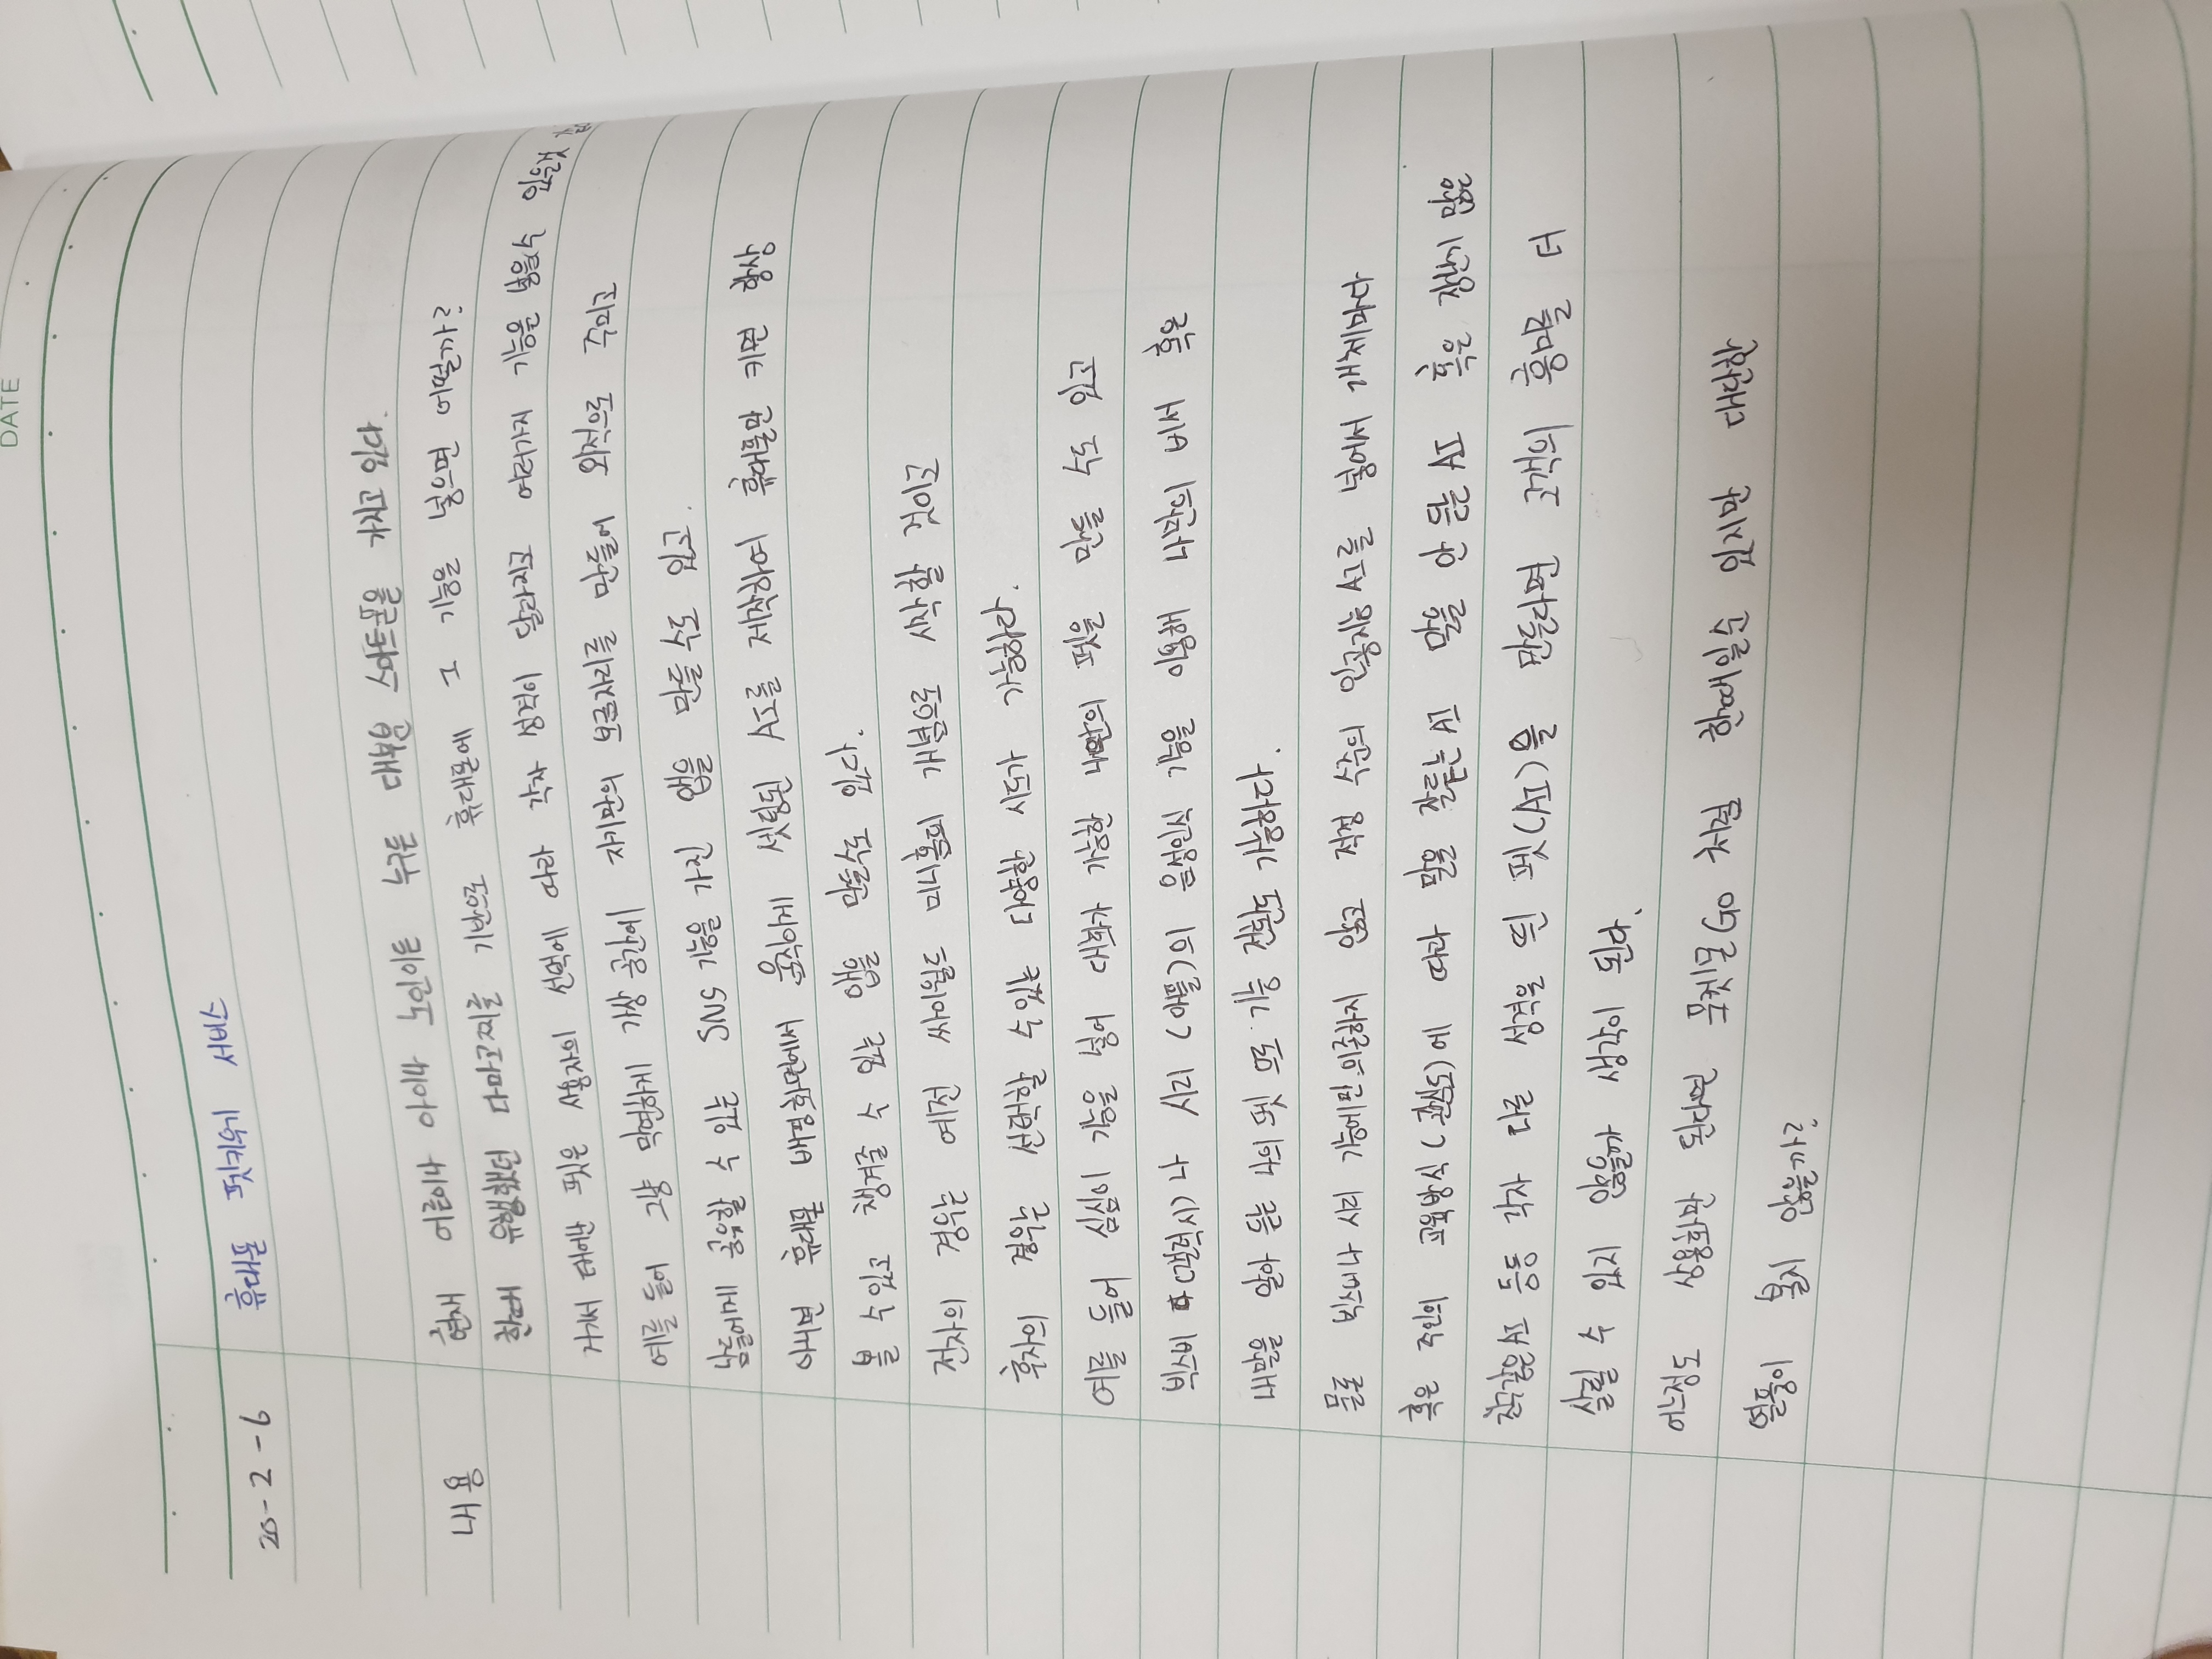 DATE
20-2-6 휴대폰 펫키우기 서비스
현재 어른이나 아이나 노인이든 누구든 대부분 스마트폰을 가지고 있다.
내용 한때 유행했던 다마고찌를 기반으로 휴대폰에 그 기능을 넣으면 어떨까?
거기서 태어난 펫은 사용자의 선택에 따라 각자 성격이 달라지고 여러가지 기능을 넣을수 있는것
예를 들어 그냥 막연하게 가상 공간에 자기만의 보금자리를 만들어 외적으로 꾸미고
남들에게 공유할 수 있는 SNS 기능을 가진 앱을 만들 수도 있고.
아니면 휴대폰 배경화면에서 움직이게 셋팅된 AI를 제작하여 휴대폰만 키면 항상
볼 수있고 챙겨줄 수 있는 앱을 만들수도 있다.
전자의 경우는 예전 싸이월드 미니홈피 개념으로 시작할 것이고
후자의 경우는 선택할 수있는 다양한 시도가 가능하다.
예를 들어 심심이 기능을 넣어 대화가 가능한 나만의 펫을 만들 수도 있고
빅스비 (갤럭시)나 시리 (애플)의 음성인식 기능을 이용해 나만의 비서 혹은
내말을 알아 듣는 나의 펫 으로 기능 전환도 가능하다.
물론 빅스비나 시리 기능에만 의존하지 않고 적정 수준의 인공지능 AI를 넣어서 개체마다
혹은 주인의 교육방식(관심도)에 따라 말을 잘듣는 AI 말을 안 듣는 AI 혹은 장난기 많은
친구같은 AI 등등 각자 다른 성격을 띈 펫(AI)을 만든다면 고객의 흥미를 더
살릴 수 있지 않을까 생각이 된다.
어느정도 상용화만 된다면 포켓몬Go 처럼 한때일순 있지만 대단한
열풍이 불지 않을까?